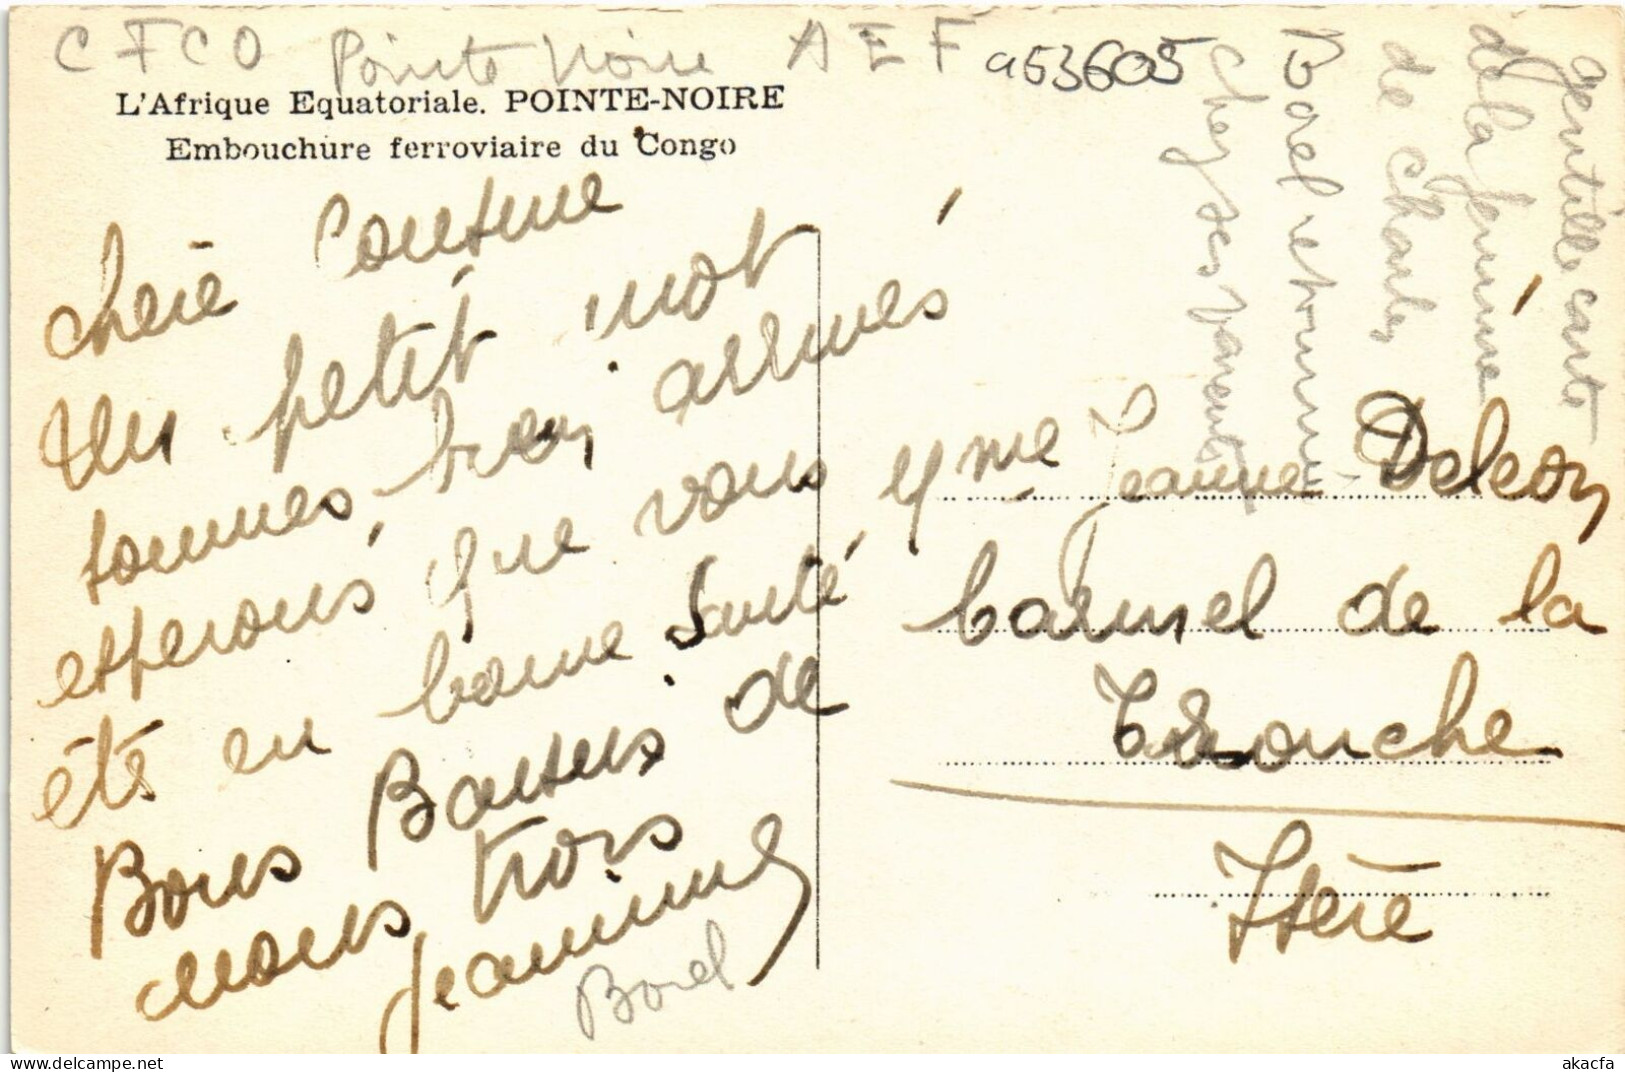 CFCO Pointe Noire AEF a53605
L'Afrique Equatoriale. POINTE-NOIRE
Embouchure ferroviaire du Congo
Chère Cousine
Un petit mot
sommes bien arrivés
esperons que vous
éts en bonne Santé
Bons Baisers de
nous trois
Jeannine
Borel
Mme Jeanne Deléon
Carmel de la
Tronche
Isère
gentille carte
de la femme
de Charles
Borel retournée
chez ses parents
akacfa